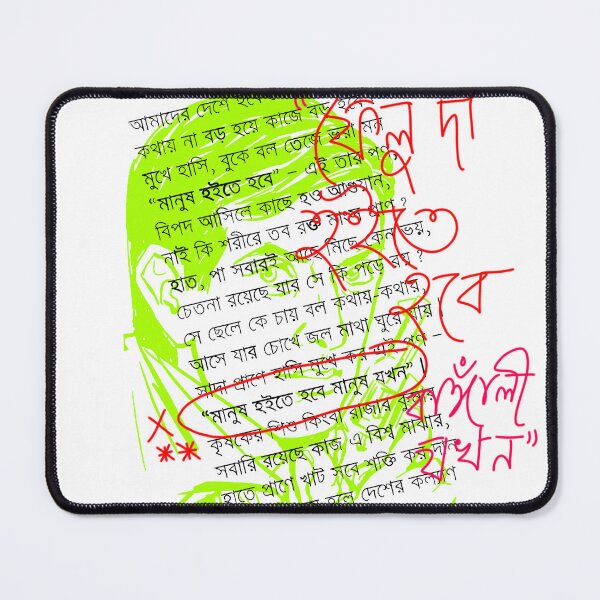 আমাদের দেশে হবে
কথায় না বড় হয়ে কাজে বড় হবে
মুখে হাসি, বুকে বল তেজে ভরা মন
“মানুষ হইতে হবে” – এই তার পণ,
বিপদ আসিলে কাছে হও আগুয়ান,
নাই কি শরীরে তব রক্ত মাংস প্রাণ ?
হাত, পা সবারই আছে মিছে কেন ভয়,
চেতনা রয়েছে যার সে কি পড়ে রয় ?
সে ছেলে কে চায় বল কথায়-কথায়,
আসে যার চোখে জল মাথা ঘুরে যায় ।
সাদা প্রাণে হাসি মুখে কর এই পণ –
“মানুষ হইতে হবে মানুষ যখন” ।
কৃষকের শিশু কিংবা রাজার কুমার
সবারি রয়েছে কাজ এ বিশ্ব মাঝার,
হাতে প্রাণে খাট সবে শক্তি কর দান
হলে দেশের কল্যাণ
“ফেলু দা
হইতে
হবে
বাঙালী
যখন”
x
**